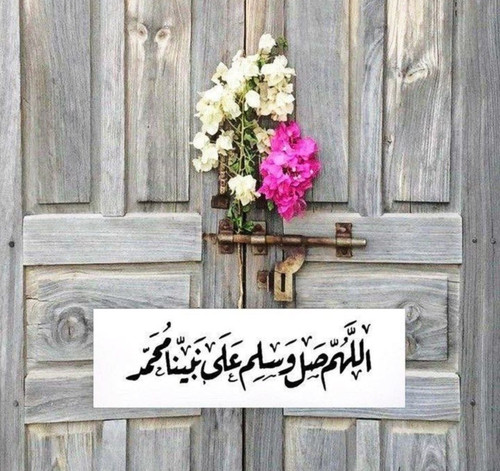 اللَّهُمَّ صَلِّ وَسَلِّم عَلَى نَبِيِّنَا مُحَمَّد